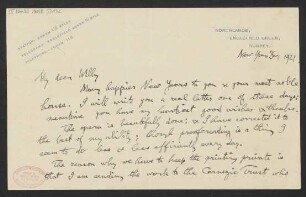 New Year's Day 1921
My dear Willy
Many happier New Years to you & your most noble
house. I will write you a real letter one of these days;
meantime you have my heartiest good wishes & thanks.
The opera is beautifully done; & I have corrected it to
the best of my ability; though proofreading is a thing I
seem to do less & less efficiently every day.
The reason why we have to keep the printing private is
that I am sending the work to the Carnegie Trust who